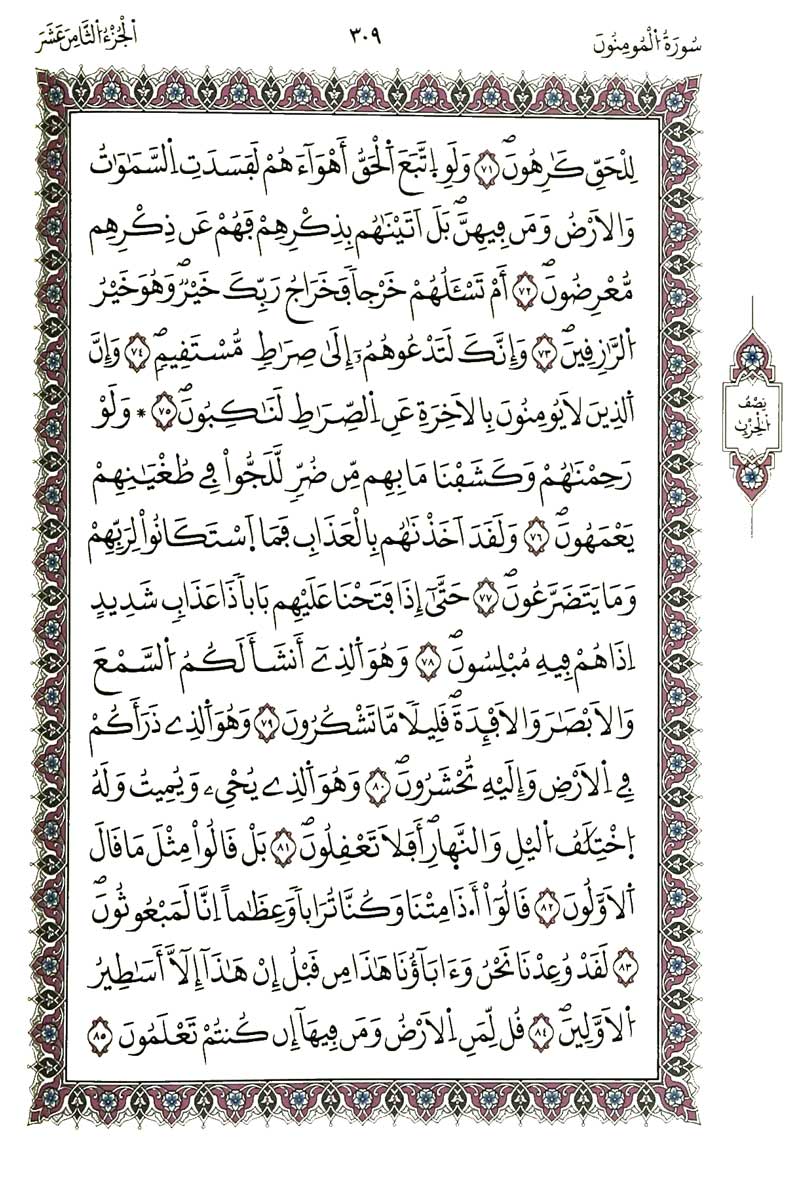 سُورَةُ الْمُومِنُونَ
٣٠٩
اَلْجُزْءُ الثَّامِنَ عَشَرَ
لِلْحَقِّ كَٰرِهُونَۖ ٧١ وَلَوِ اِتَّبَعَ اَلْحَقُّ أَهْوَآءَهُمْ لَفَسَدَتِ اِلسَّمَٰوَٰتُ
وَالَارْضُ وَمَن فِيهِنَّۖ بَلَ اَتَيْنَٰهُم بِذِكْرِهِمْ فَهُمْ عَن ذِكْرِهِم
مُّعْرِضُونَۖ ٧٢ أَمْ تَسْـَٔلُهُمْ خَرْجاٗ فَخَرَاجُ رَبِّكَ خَيْرٞۖ وَهُوَ خَيْرُ
اُلرَّٰزِقِينَۖ ٧٣ وَإِنَّكَ لَتَدْعُوهُمُۥٓ إِلَىٰ صِرَٰطٖ مُّسْتَقِيمٖۖ ٧٤ وَإِنَّ
اَلذِينَ لَا يُومِنُونَ بِالَاخِرَةِ عَنِ اِلصِّرَٰطِ لَنَٰكِبُونَۖ ٧٥ * وَلَوْ
رَحِمْنَٰهُمْ وَكَشَفْنَا مَا بِهِم مِّن ضُرّٖ لَّلَجُّواْ فِے طُغْيَٰنِهِمْ
يَعْمَهُونَۖ ٧٦ وَلَقَدَ اَخَذْنَٰهُم بِالْعَذَابِ فَمَا اَسْتَكَانُواْ لِرَبِّهِمْ
وَمَا يَتَضَرَّعُونَۖ ٧٧ حَتَّىٰٓ إِذَا فَتَحْنَا عَلَيْهِم بَاباٗ ذَا عَذَابٖ شَدِيدٍ
اِذَا هُمْ فِيهِ مُبْلِسُونَۖ ٧٨ وَهُوَ اَلذِےٓ أَنشَأَ لَكُمُ اُلسَّمْعَ
وَالَابْصَٰرَ وَالَافْـِٕدَةَۖ قَلِيلاٗ مَّا تَشْكُرُونَۖ ٧٩ وَهُوَ اَلذِے ذَرَأَكُمْ
فِے اِلَارْضِ وَإِلَيْهِ تُحْشَرُونَۖ ٨٠ وَهُوَ اَلذِے يُحْيِۦ وَيُمِيتُ وَلَهُ
اُخْتِلَٰفُ اُليْلِ وَالنَّهارِۖ أَفَلَا تَعْقِلُونَۖ ٨١ بَلْ قَالُواْ مِثْلَ مَا قَالَ
اَلَاوَّلُونَۖ ٨٢ قَالُوٓاْ أَ.ذَا مِتْنَا وَكُنَّا تُرَاباٗ وَعِظَٰماً اِنَّا لَمَبْعُوثُونَۖ
٨٣ لَقَدْ وُعِدْنَا نَحْنُ وَءَابَآؤُنَا هَٰذَا مِن قَبْلُ إِنْ هَٰذَآ إِلَّآ أَسَٰطِيرُ
اُلَاوَّلِينَۖ ٨٤ قُل لِّمَنِ اِلَارْضُ وَمَن فِيهَآ إِن كُنتُمْ تَعْلَمُونَ ٨٥
نِصْفُ
اَلْحِزْبِ